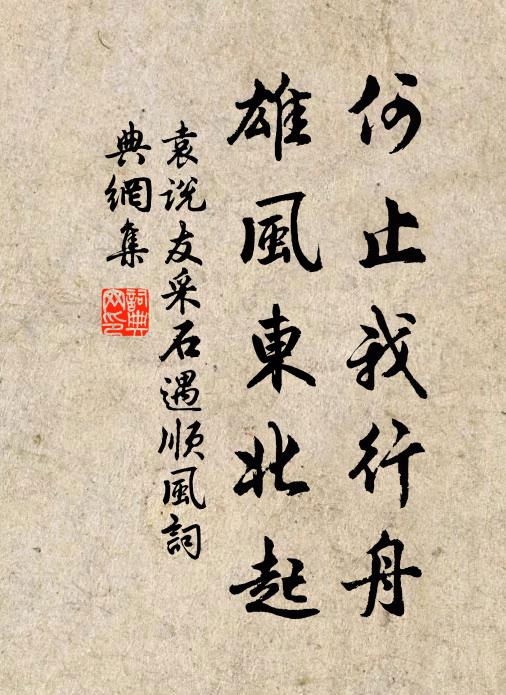 何止我行舟
雄風東北起
袁說友采石遇順風詞
典網集
詞典網印